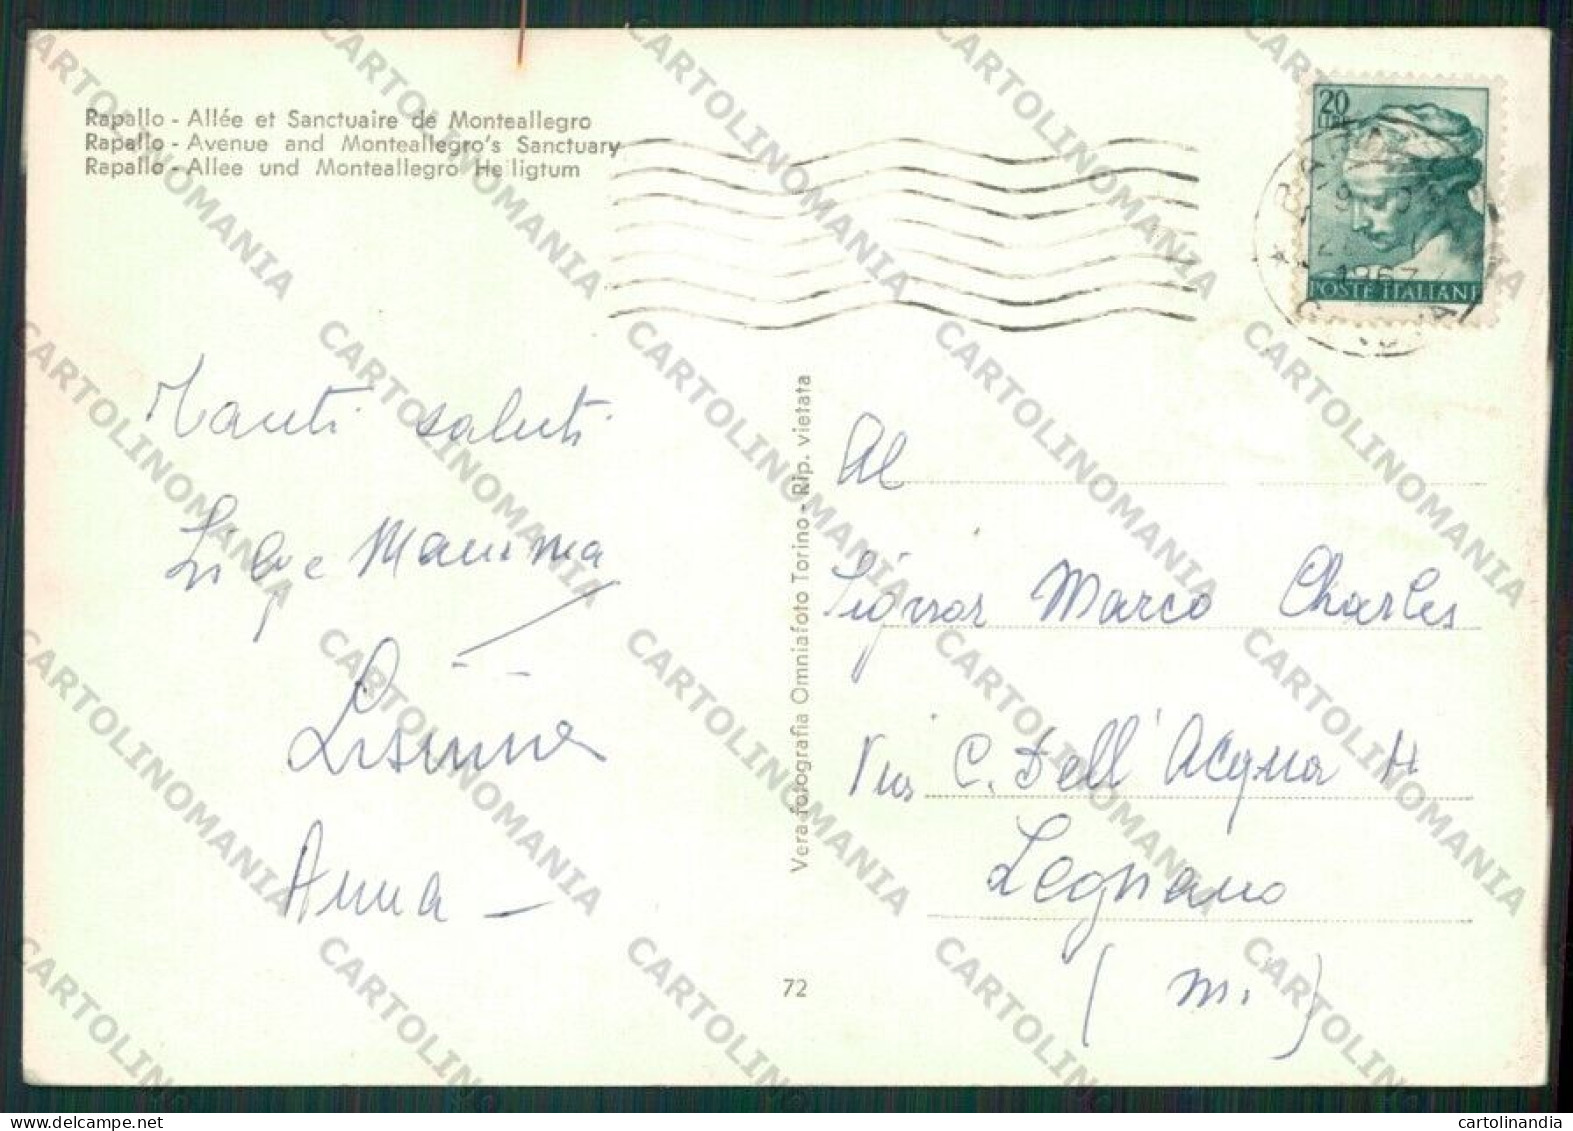 Rapallo - Allée et Sanctuaire de Monteallegro
Rapallo - Avenue and Monteallegro's Sanctuary
Rapallo - Allee und Monteallegro Heiligtum
20
LIRE
POSTE ITALIANE
1967
GENOVA
Tanti saluti
Mamma
Anna -
Vera fotografia Omniafoto Torino - Rip. vietata
72
Al
Signor Marco Charles
Via C. Dell'Acqua
Legnano
(Mi.)
CARTOLINOMANIA
cartolinandia